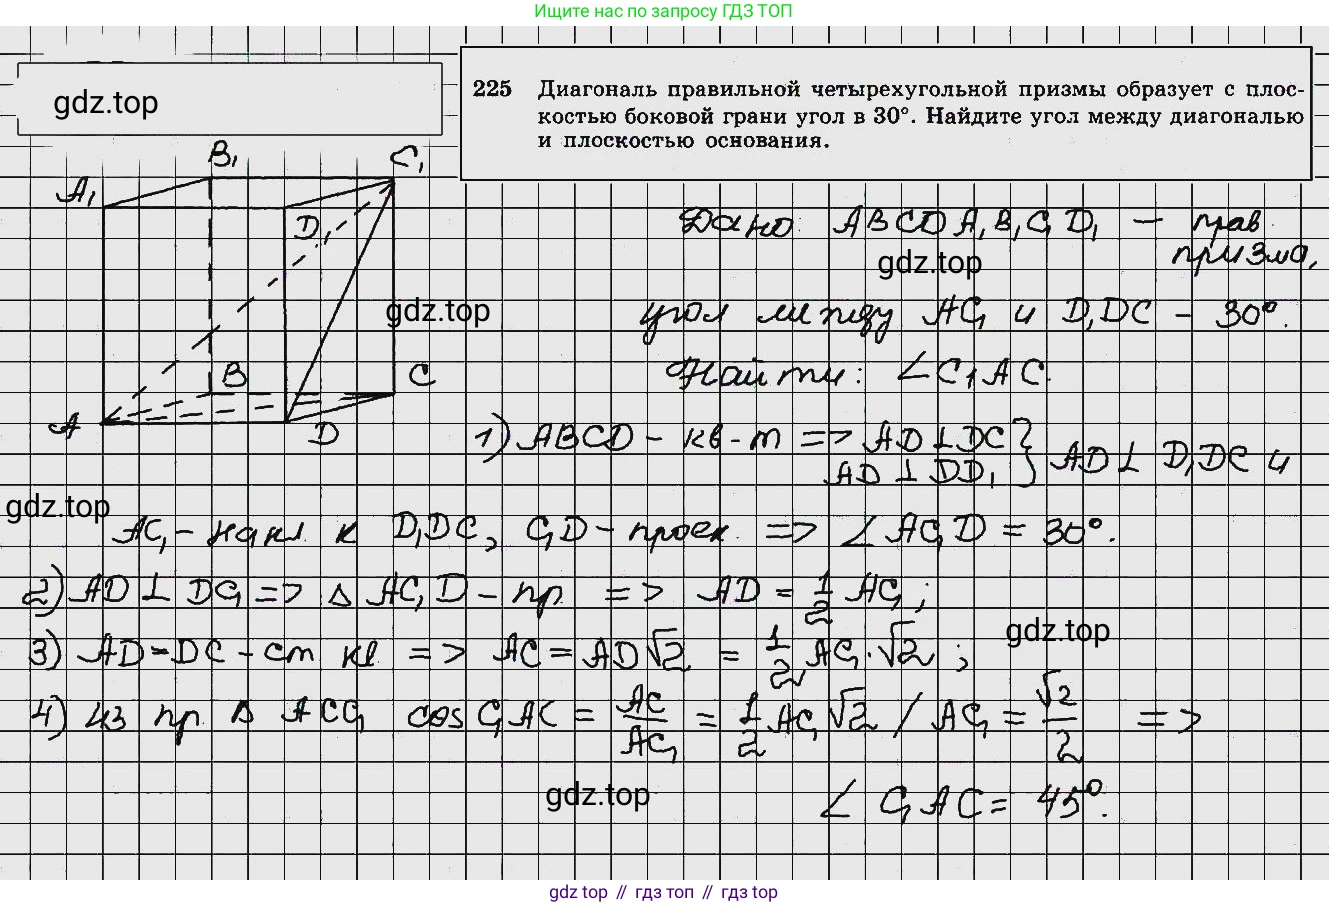 Ищите нас по запросу ГДЗ ТОП
gdz.top
225 Диагональ правильной четырехугольной призмы образует с плос-
костью боковой грани угол в 30°. Найдите угол между диагональю
и плоскостью основания.
B₁
C₁
A₁
D₁
B
C
A
D
Дано: ABCDA₁B₁C₁D₁ — прав
призма,
gdz.top
gdz.top
угол между AC₁ и D₁DC – 30°.
Найти: ∠C₁AC.
1) ABCD – кв-т => AD⊥DC
AD ⊥ DD₁ } AD⊥ D₁DC и
gdz.top
AC₁ – накл к D₁DC, C₁D – проек. => ∠AC₁D = 30°.
2) AD ⊥ DC₁ => △ AC₁D – пр. => AD = 1/2 AC₁;
gdz.top
3) AD=DC – ст кв => AC = AD√2 = 1/2 AC₁·√2;
4) из пр. △ ACC₁ cos C₁AC = AC/AC₁ = 1/2 AC₁√2 / AC₁ = √2/2 =>
gdz.top
∠ C₁AC = 45°.
gdz top // гдз топ // gdz top